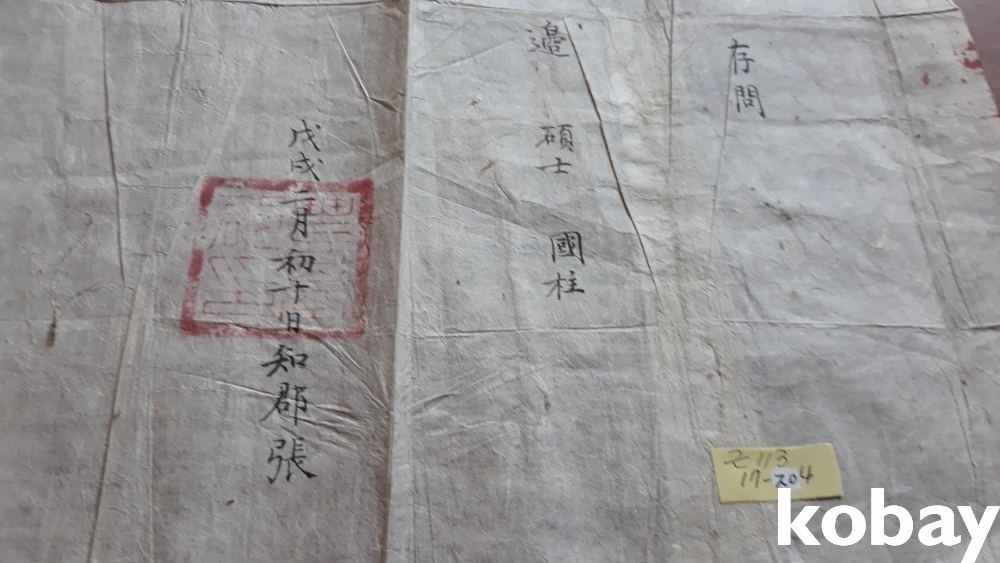 存問
邉 碩士 國柱
戊戌二月初十日知郡張
근113
17-204
kobay